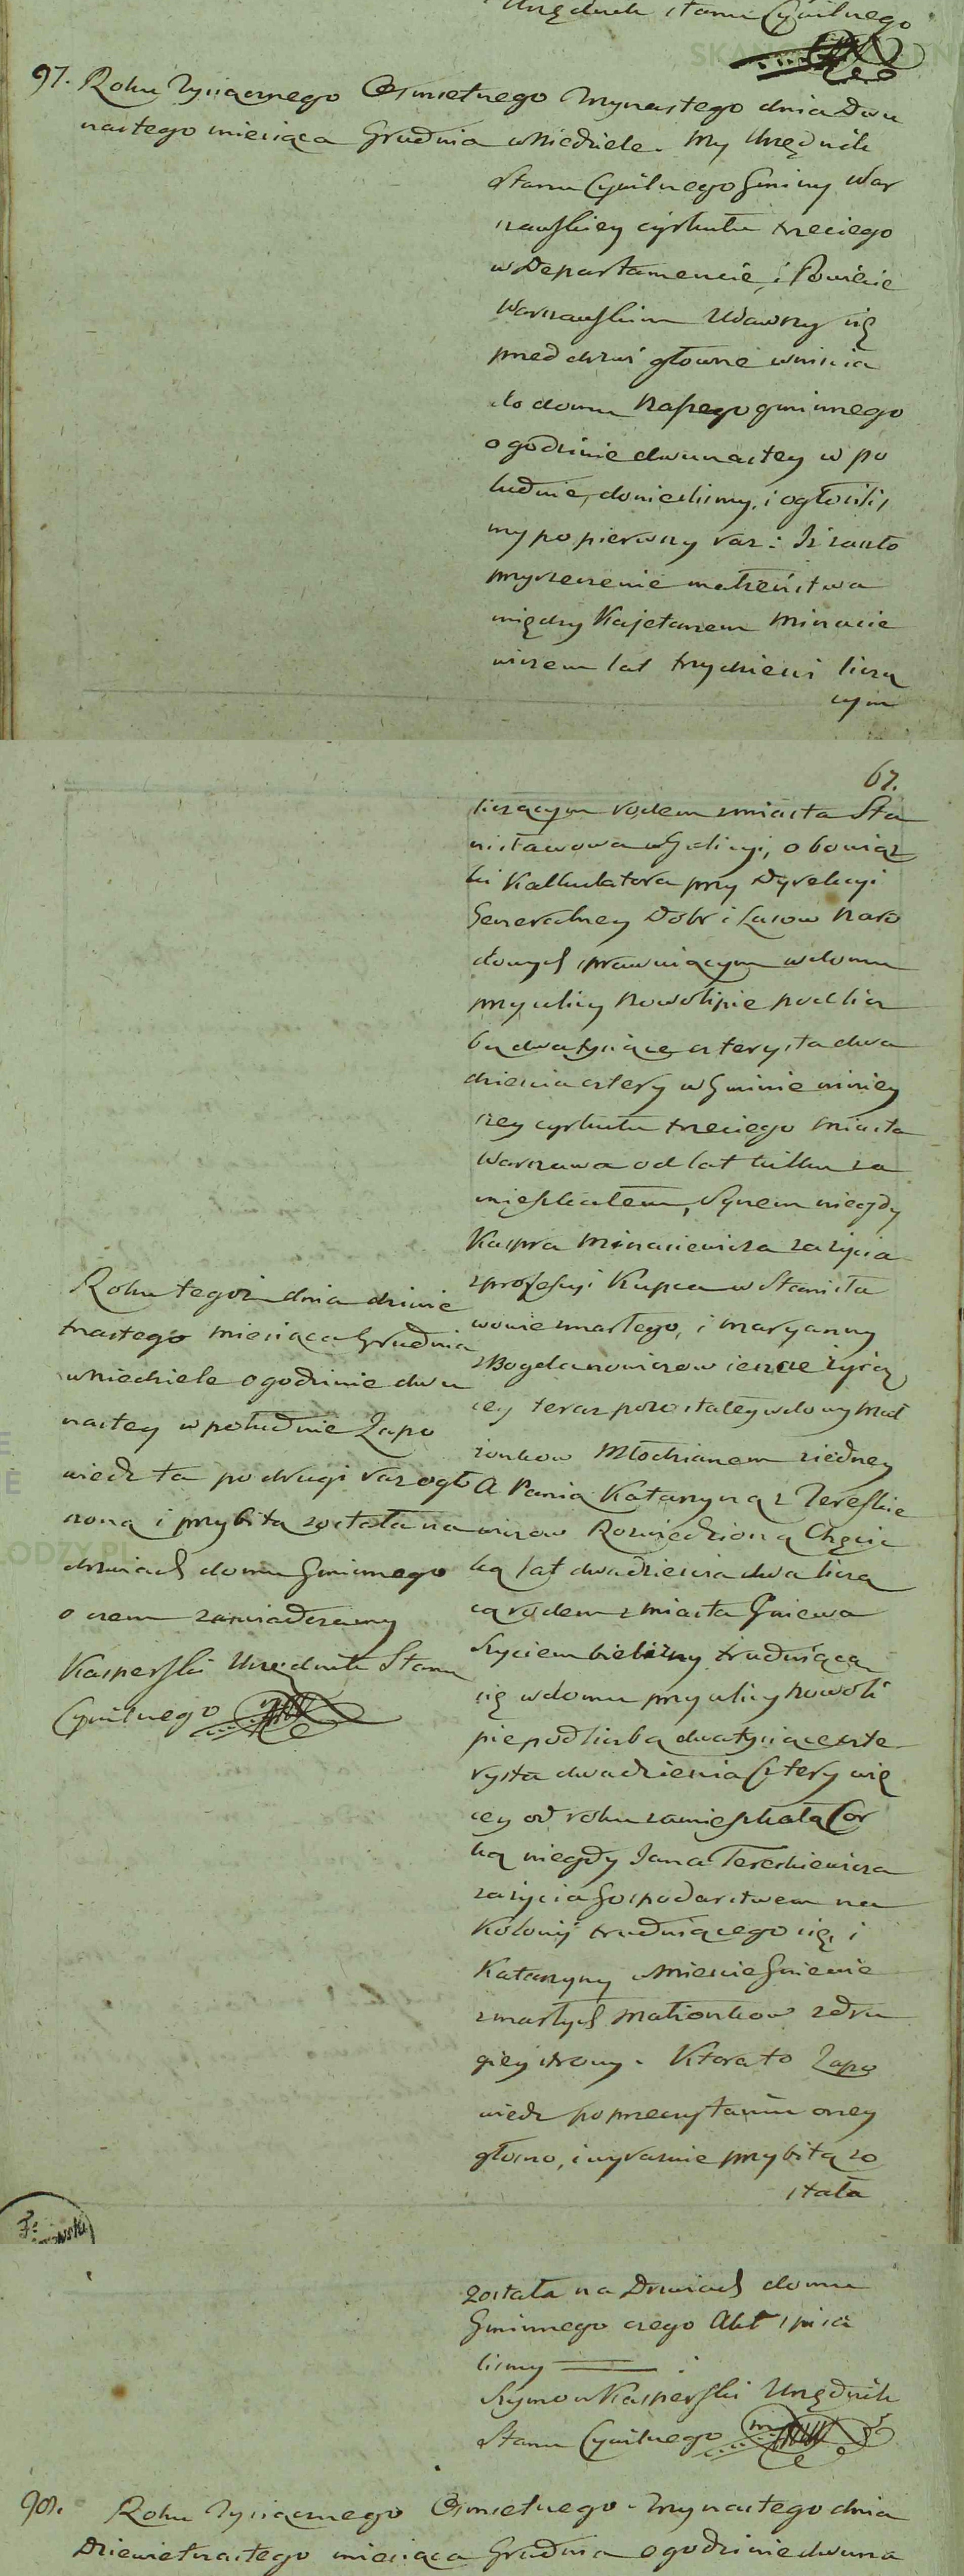 Urzędnik Stanu Cywilnego
97. Roku Tysiącznego Osmsetnego Trzynastego dnia Dwu
nastego miesiąca Grudnia w Niedziele. My Urzędnik
Stanu Cywilnego Gminy War
szawskiey cyrkułu trzeciego
w Departamencie, i Powiecie
Warszawskim Udawszy się
przed drzwi głowne wniścia
do domu Naszego gminnego
o godzinie dwunastey w po
łudnie, doniesliśmy, i ogłosili,
my po pierwszy raz: Iż zaszło
przyrzeczenie małżeństwa
między Kajetanem Minacie
wiczem lat trzydzieści liczą
cym
67.
liczącym rodem z miasta Sta
nisławowa w Galicyi, obowiąz
ki Kalkulatora przy Dyrekcyi
Generalney Dobr i Lasow Naro
dowych sprawuiącym w domu
przy ulicy Nowolipie pod licz
bą dwa tysiące czterysta dwa
dzieścia cztery w Gminie niniey
szey cyrkułu trzeciego Miasta
Warszawa od lat kilku za
mieszkałem, Synem niegdy
Kaspra Minasiewicza za życia
z professyi Kupca w Stanisła
wowie zmarłego, i Maryanny
z Bogdanowiczow ieszcze żyią
cey teraz pozostałey wdowy Mał
żonkow Młodzianem z iedney
A Panią Katarzyną z Tereskie
wiczow Rozwiedzioną Chęcic
ką lat dwadzieścia dwa liczą
cą rodem z Miasta Gniewa
Szyciem bielizny trudniącą
się w domu przy ulicy Nowoli
pie pod liczbą dwa tysiące czte
rysta dwadzieścia cztery wię
cey od roku zamieszkałą Cor
ką niegdy Jana Tereskiewicza
za życia Gospodarstwem na
Kolonij trudniącego się, i
Katarzyny w Mieście Gniewie
zmarłych Małżonkow z dru
giey strony. Ktora to Zapo
wiedz po przeczytaniu oney
głosno, i wyraznie przybitą zo
stała
Roku tegoż dnia dziewie
tnastego Miesiąca Grudnia
w Niedziele o godzinie dwu
nastey w południe Zapo
wiedz ta po drugi raz ogło
szoną i przybitą została na
drzwiach domu Gminnego
o czem zaświadczamy
Kasperski Urzędnik Stanu
Cywilnego
została na Drzwiach domu
Gminnego czego Akt spisa
lismy
Szymon Kasperski Urzędnik
Stanu Cywilnego
98. Roku Tysiącznego Osmsetnego Trzynastego dnia
Dziewietnastego miesiąca Grudnia o godzinie dwuna